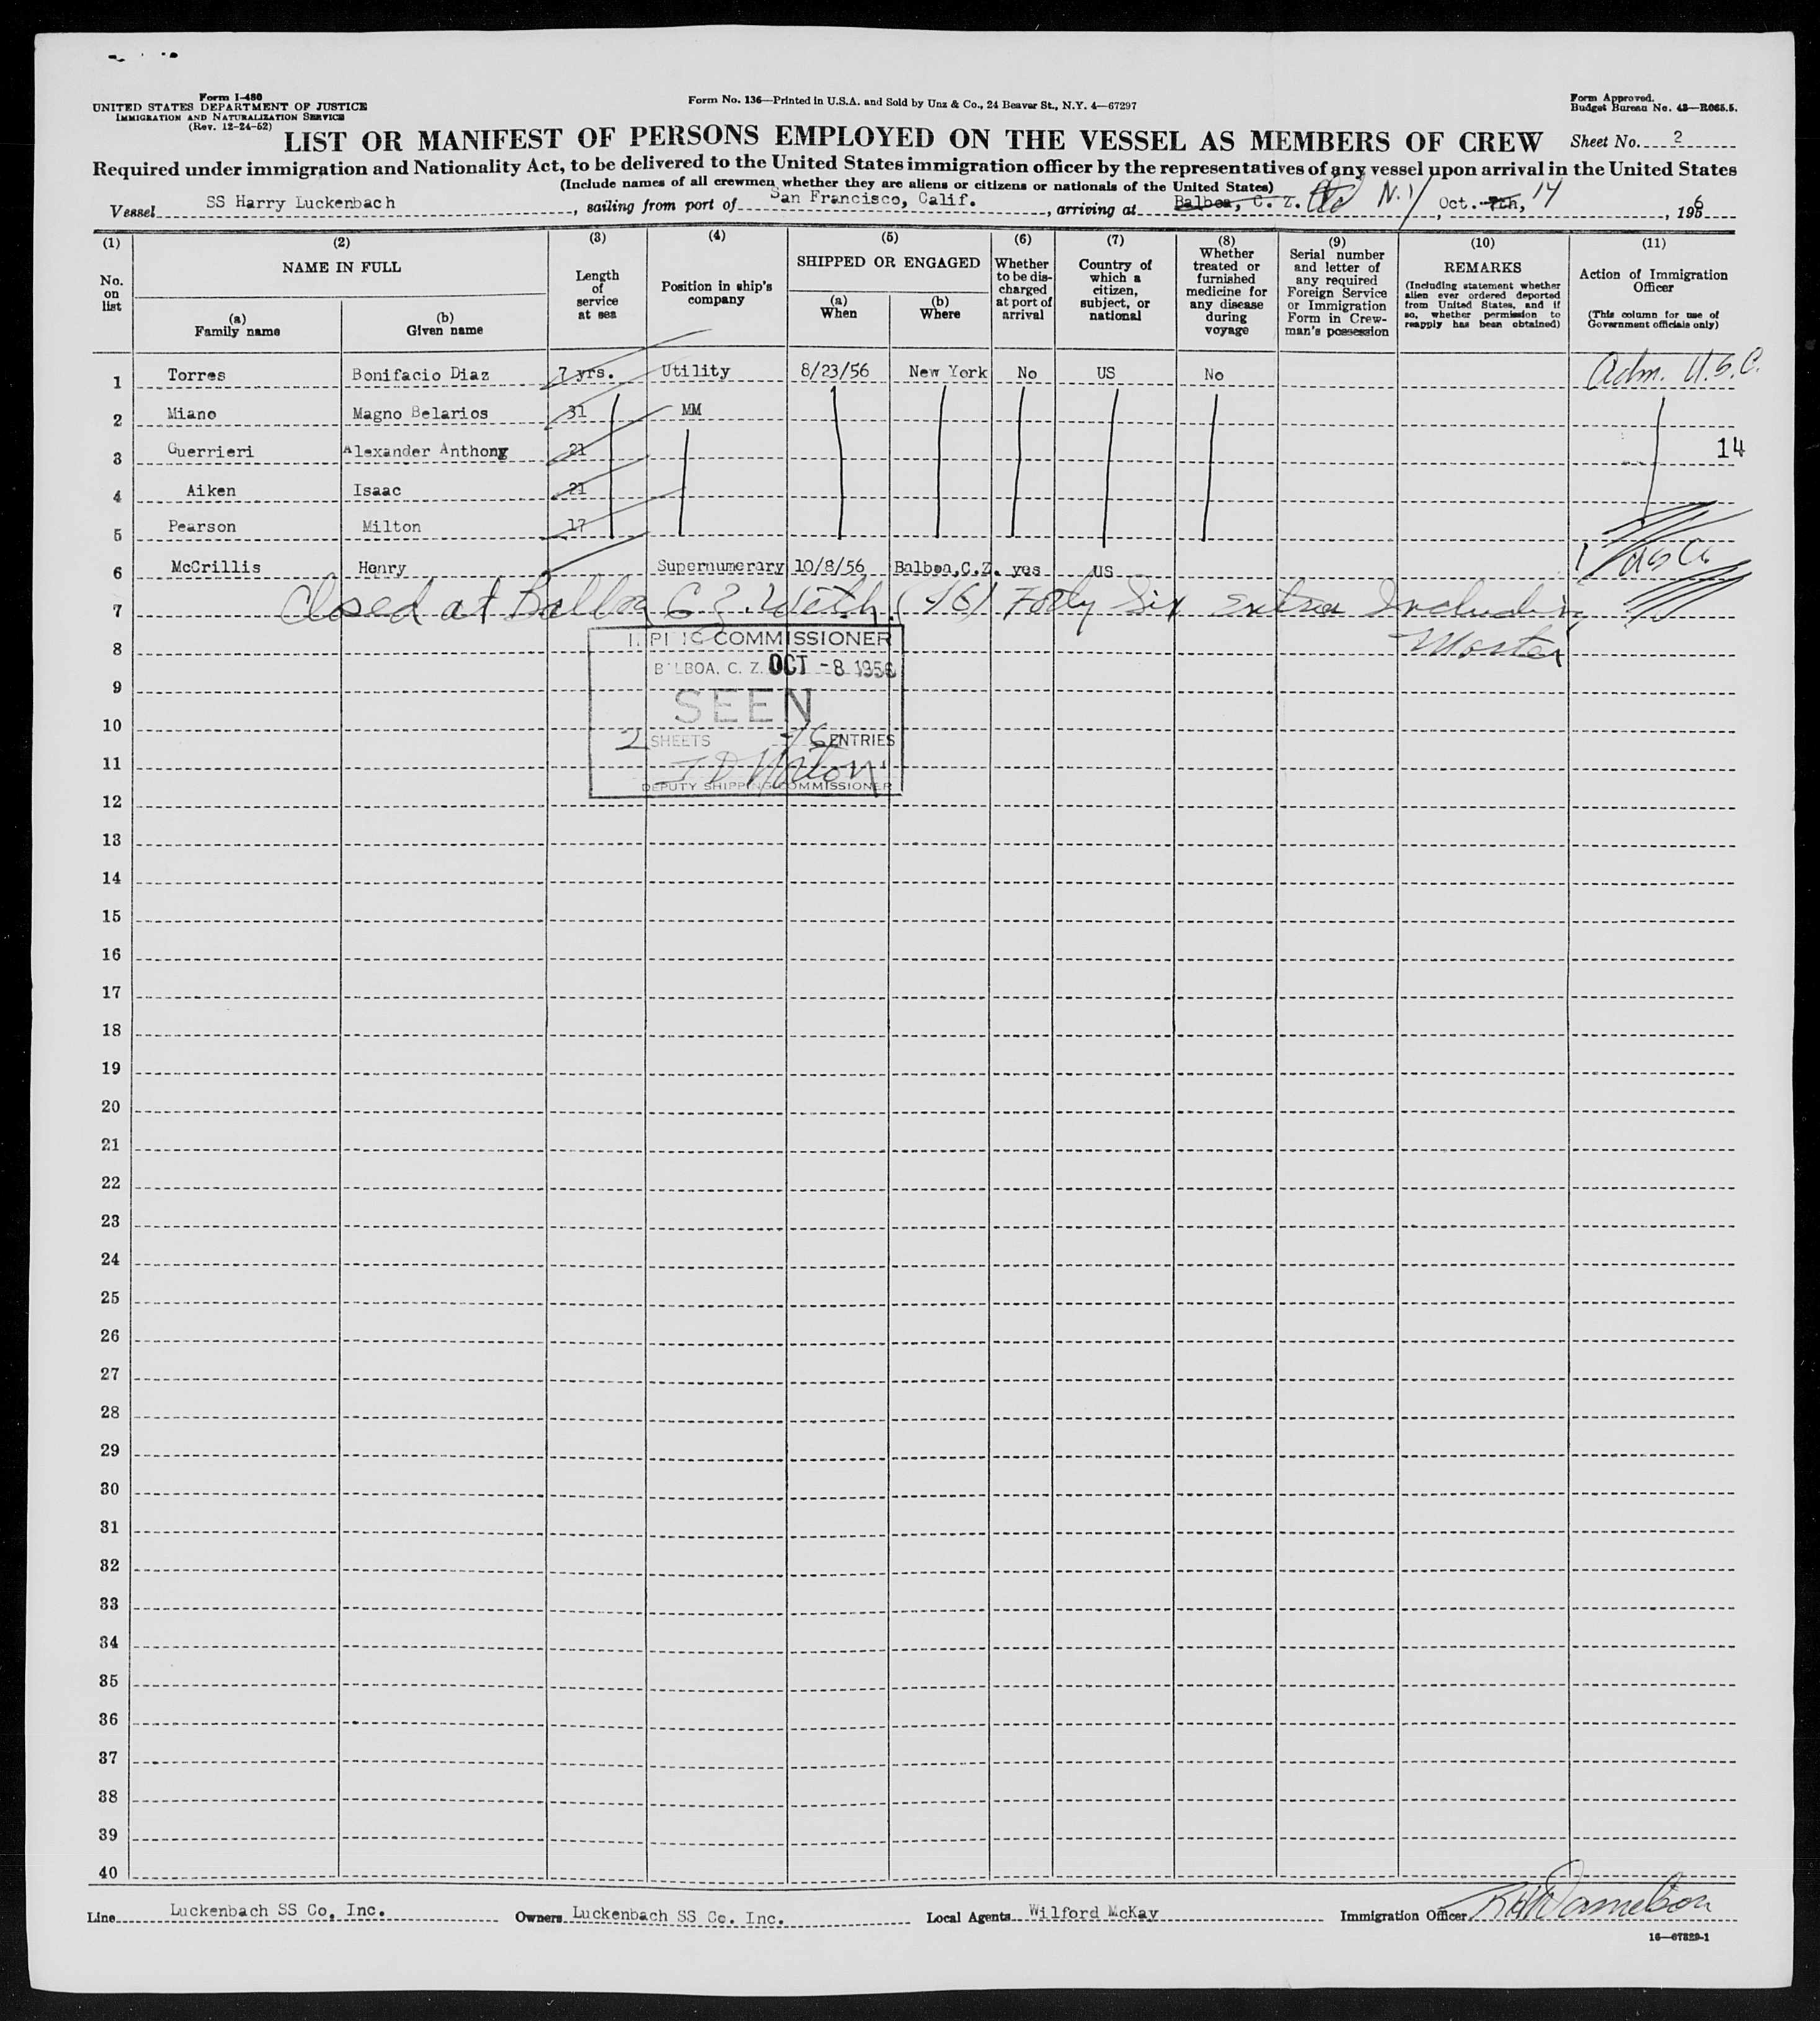 Form I-480
UNITED STATES DEPARTMENT OF JUSTICE
IMMIGRATION AND NATURALIZATION SERVICE
(Rev. 12-24-52)
Form No. 136—Printed in U.S.A. and Sold by Unz & Co., 24 Beaver St., N.Y. 4—67297
Form Approved.
Budget Bureau No. 43—R065.5.
LIST OR MANIFEST OF PERSONS EMPLOYED ON THE VESSEL AS MEMBERS OF CREW
Sheet No. 2
Required under immigration and Nationality Act, to be delivered to the United States immigration officer by the representatives of any vessel upon arrival in the United States
(Include names of all crewmen whether they are aliens or citizens or nationals of the United States)
Vessel SS Harry Luckenbach, sailing from port of San Francisco, Calif., arriving at Balboa, C. Z. N.Y, Oct. 7th, 14, 1956
(1) (2) (3) (4) (5) (6) (7) (8) (9) (10) (11)
No. on list
NAME IN FULL
(a) Family name
(b) Given name
Length of service at sea
Position in ship's company
SHIPPED OR ENGAGED
(a) When
(b) Where
Whether to be discharged at port of arrival
Country of which a citizen, subject, or national
Whether treated or furnished medicine for any disease during voyage
Serial number and letter of any required Foreign Service or Immigration Form in Crewman's possession
REMARKS
(Including statement whether alien ever ordered deported from United States, and if so, whether permission to reapply has been obtained)
Action of Immigration Officer
(This column for use of Government officials only)
1 Torres Bonifacio Diaz 7 yrs. Utility 8/23/56 New York No US No Adm. U.S.C.
2 Miano Magno Belarios 31 MM
3 Guerrieri Alexander Anthony 21 14
4 Aiken Isaac 21
5 Pearson Milton 17
6 McCrillis Henry Supernumerary 10/8/56 Balboa,C.Z. yes US
7 Closed at Balboa C Z. With (46) Forty Six entries Including
8 Master
COMMISSIONER
BALBOA, C. Z. OCT -8 1956
SEEN
2 SHEETS 46 ENTRIES
DEPUTY SHIPPING COMMISSIONER
9
10
11
12
13
14
15
16
17
18
19
20
21
22
23
24
25
26
27
28
29
30
31
32
33
34
35
36
37
38
39
40
Line Luckenbach SS Co, Inc. Owners Luckenbach SS Co. Inc. Local Agents Wilford McKay Immigration Officer
16—67829-1